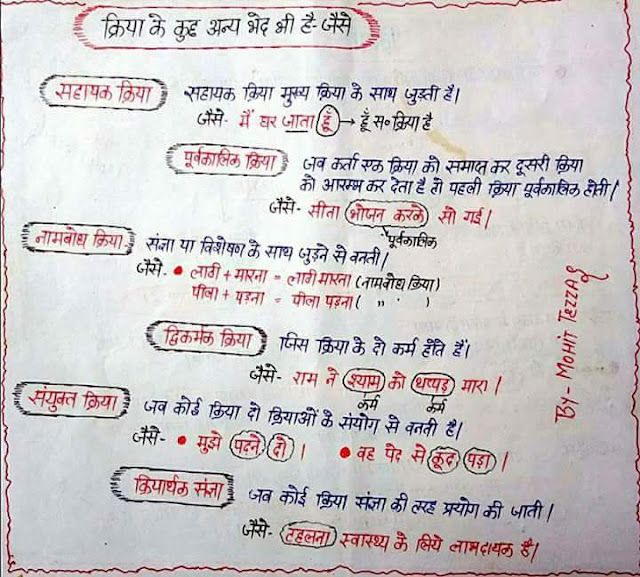 क्रिया के कुछ अन्य भेद भी है- जैसे
सहायक क्रिया सहायक क्रिया मुख्य क्रिया के साथ जुड़ती है।
जैसे- मैं घर जाता हूँ → हूँ स० क्रिया है
पूर्वकालिक क्रिया जब कर्ता एक क्रिया को समाप्त कर दूसरी क्रिया
को आरम्भ कर देता है तो पहली क्रिया पूर्वकालिक होती।
जैसे- सीता भोजन करके सो गई।
पूर्वकालिक
नामबोध क्रिया संज्ञा या विशेषण के साथ जुड़ने से बनती।
जैसे- • लाठी + मारना = लाठी मारना (नामबोध क्रिया)
पीला + पड़ना = पीला पड़ना ( " " )
द्विकर्मक क्रिया जिस क्रिया के दो कर्म होते हैं।
जैसे- राम ने श्याम को थप्पड़ मारा।
कर्म कर्म
संयुक्त क्रिया जब कोई क्रिया दो क्रियाओं के संयोग से बनती है।
जैसे- • मुझे पढ़ने दो। • वह पेड़ से कूद पड़ा।
क्रियार्थक संज्ञा जब कोई क्रिया संज्ञा की तरह प्रयोग की जाती।
जैसे- टहलना स्वास्थ्य के लिये लाभदायक है।
By - MOHIT TEZZA